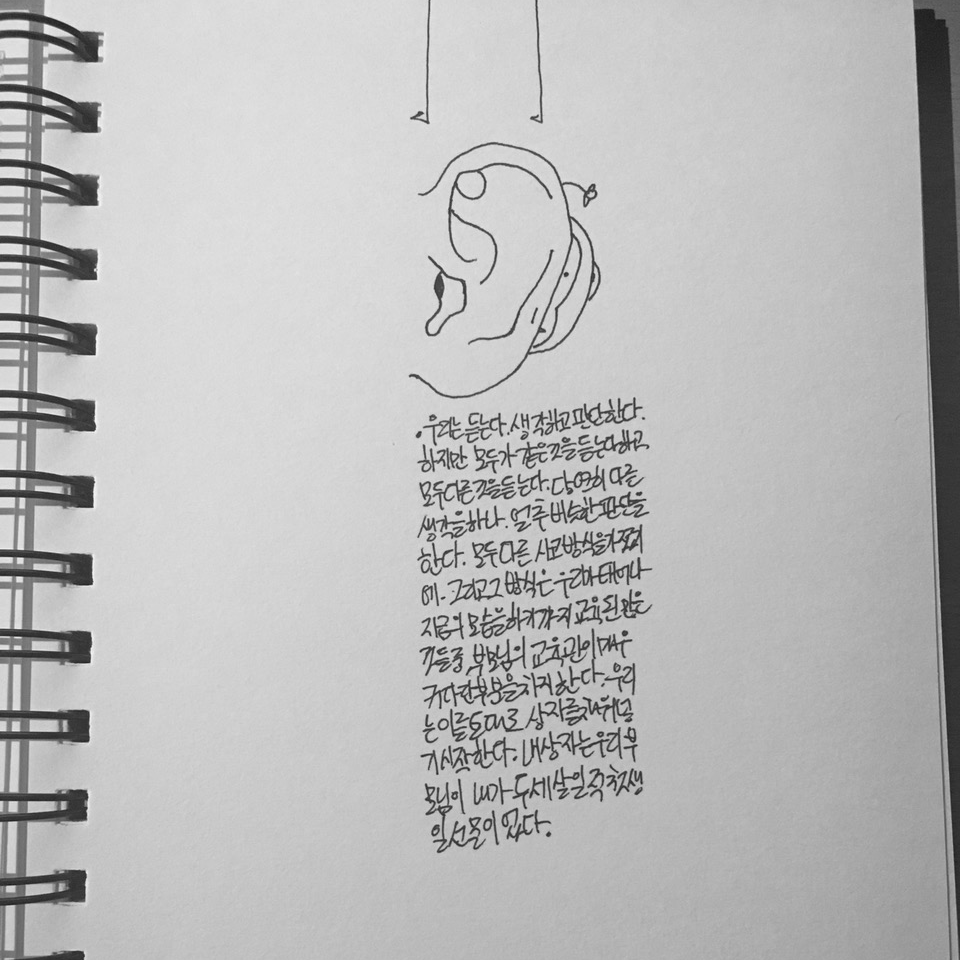 .우리는 듣는다. 생각하고 판단한다.
하지만 모두가 같은것을 듣는다하고
모두다른것을듣는다. 당연히 다른
생각을하나. 얼추 비슷한 판단을
한다. 모두 다른 사고방식을가졌기
에. 그리고 그 방식은 우리가 태어나
지금의 모습을하기까지 교육된 많은
것들중, 부모님의 교육관이 매우
커다란부분을차지한다. 우리
는 이를토대로 상자를채워넣
기시작한다. 내상자는 우리부
모님이 내가 두세살일적 첫생
일선물이었다.